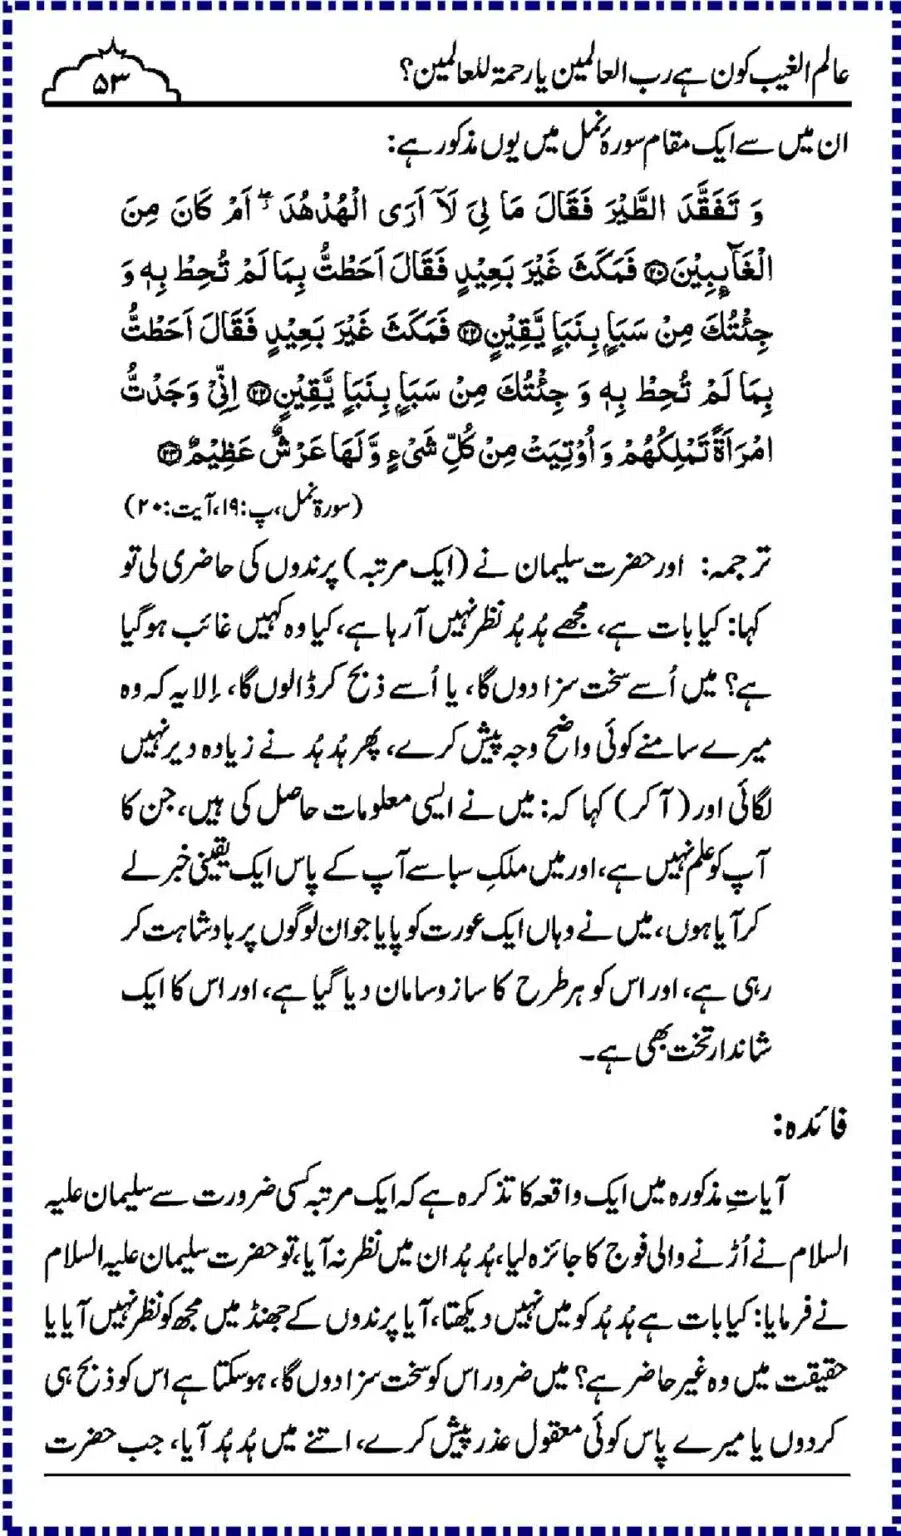 عالم الغیب کون ہے رب العالمین یا رحمۃ للعالمین؟
۵۳
ان میں سے ایک مقام سورۂ نمل میں یوں مذکور ہے:
وَ تَفَقَّدَ الطَّیْرَ فَقَالَ مَا لِیَ لَاۤ اَرَی الْهُدْهُدَ ۖ٘ اَمْ كَانَ مِنَ
الْغَآىِٕبِیْنَ۝۲۰ فَمَكَثَ غَیْرَ بَعِیْدٍ فَقَالَ اَحَطْتُّ بِمَا لَمْ تُحِطْ بِهٖ وَ
جِئْتُكَ مِنْ سَبَاٍۭ بِنَبَاٍ یَّقِیْنٍ۝۲۲ فَمَكَثَ غَیْرَ بَعِیْدٍ فَقَالَ اَحَطْتُّ
بِمَا لَمْ تُحِطْ بِهٖ وَ جِئْتُكَ مِنْ سَبَاٍۭ بِنَبَاٍ یَّقِیْنٍ۝۲۲ اِنِّیْ وَجَدْتُّ
امْرَاَةً تَمْلِكُهُمْ وَ اُوْتِیَتْ مِنْ كُلِّ شَیْءٍ وَّ لَهَا عَرْشٌ عَظِیْمٌ۝۲۳
(سورۃ نمل، پ:۱۹، آیت:۲۰)
ترجمہ: اور حضرت سلیمان نے (ایک مرتبہ) پرندوں کی حاضری لی تو
کہا: کیا بات ہے، مجھے ہُد ہُد نظر نہیں آرہا ہے، کیا وہ کہیں غائب ہوگیا
ہے؟ میں اُسے سخت سزا دوں گا، یا اُسے ذبح کر ڈالوں گا، اِلا یہ کہ وہ
میرے سامنے کوئی واضح وجہ پیش کرے، پھر ہُد ہُد نے زیادہ دیر نہیں
لگائی اور (آکر) کہا کہ: میں نے ایسی معلومات حاصل کی ہیں، جن کا
آپ کو علم نہیں ہے، اور میں ملکِ سبا سے آپ کے پاس ایک یقینی خبر لے
کر آیا ہوں، میں نے وہاں ایک عورت کو پایا جو ان لوگوں پر بادشاہت کر
رہی ہے، اور اس کو ہر طرح کا ساز و سامان دیا گیا ہے، اور اس کا ایک
شاندار تخت بھی ہے۔
فائدہ:
آیاتِ مذکورہ میں ایک واقعہ کا تذکرہ ہے کہ ایک مرتبہ کسی ضرورت سے سلیمان علیہ
السلام نے اُڑنے والی فوج کا جائزہ لیا، ہُد ہُد ان میں نظر نہ آیا، تو حضرت سلیمان علیہ السلام
نے فرمایا: کیا بات ہے ہُد ہُد کو میں نہیں دیکھتا، آیا پرندوں کے جھنڈ میں مجھ کو نظر نہیں آیا یا
حقیقت میں وہ غیر حاضر ہے؟ میں ضرور اس کو سخت سزا دوں گا، ہوسکتا ہے اس کو ذبح ہی
کردوں یا میرے پاس کوئی معقول عذر پیش کرے، اتنے میں ہُد ہُد آیا، جب حضرت